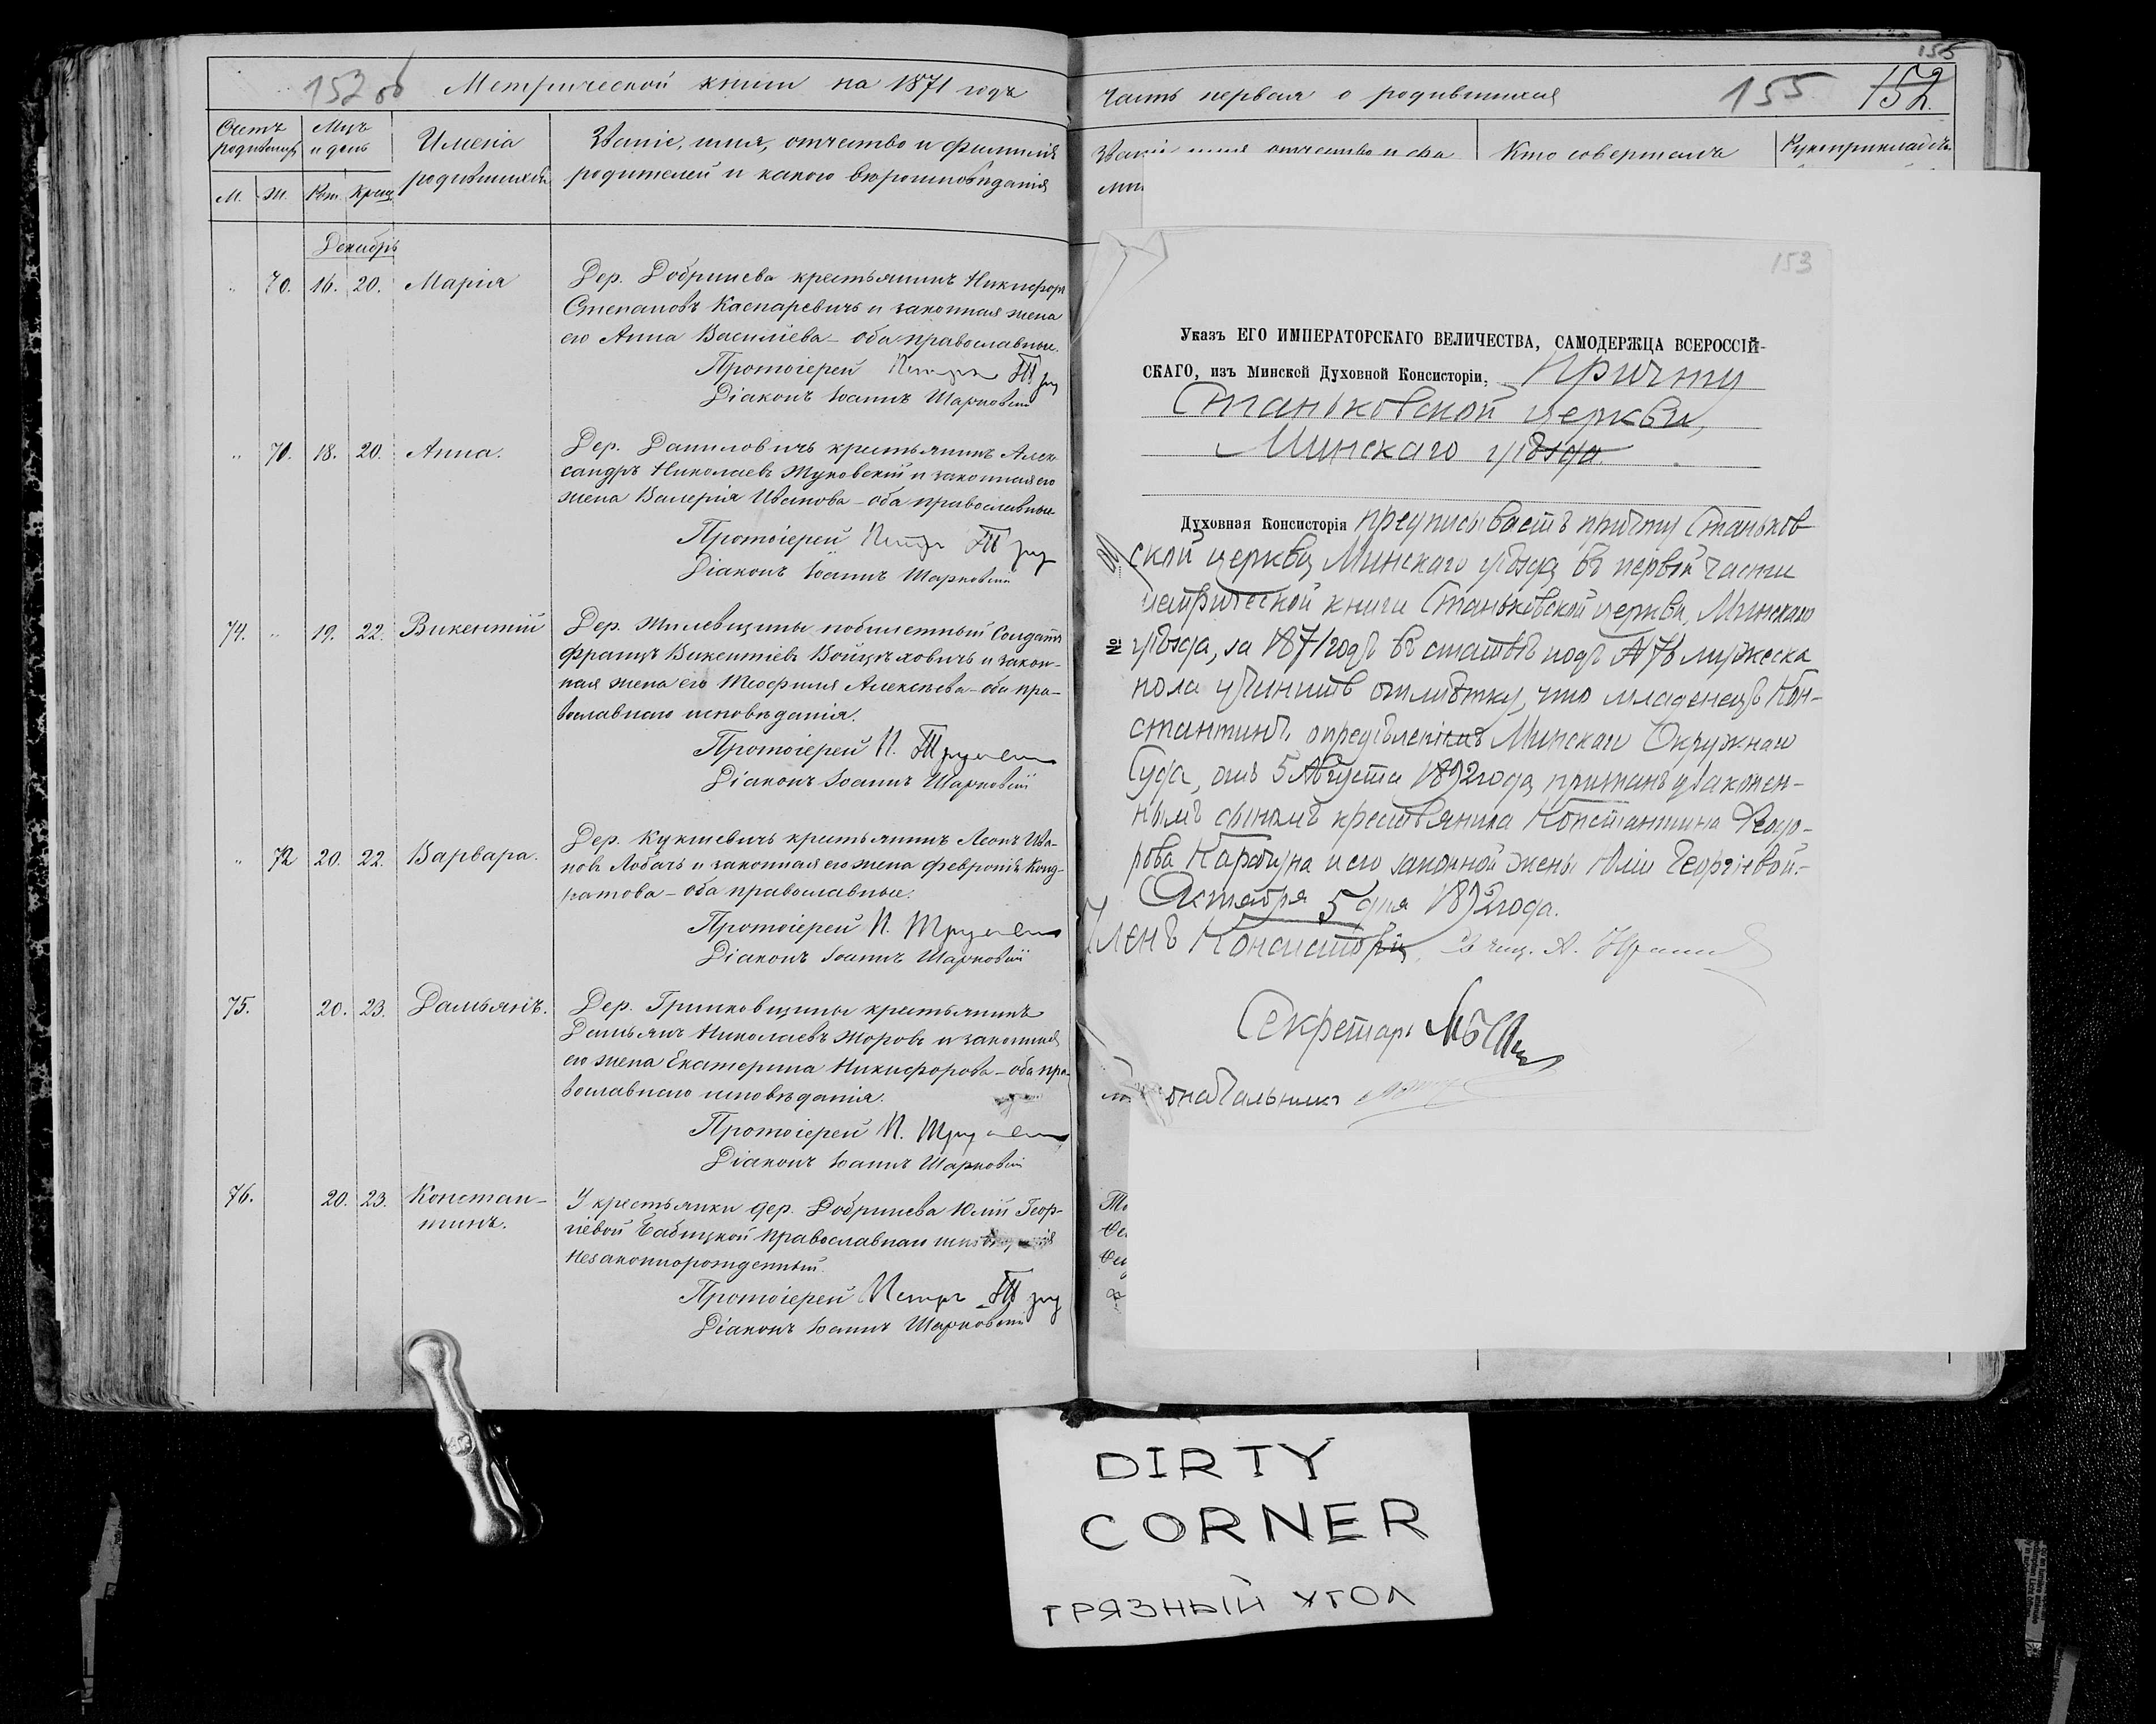 153 об Метрической книги на 1871 годъ
Счетъ родившихся
Мцъ и день
Имена родившихся
Званіе, имя, отчество и фамилія родителей и какого вѣроисповѣданія
М. Ж. Рож. Крещ.
Декабрь
70. 16. 20. Марія
Дер. Добринева крестьянинъ Никифоръ
Степановъ Каспаревичъ и законная жена
его Анна Василіева – оба православные.
Протоіерей Петръ
Діаконъ Іоаннъ Шарковскій
71. 18. 20. Анна.
Дер. Даниловичъ крестьянинъ Алек-
сандръ Николаевъ Жуковскій и законная его
жена Валерія Иванова – оба православные
Протоіерей Петръ
Діаконъ Іоаннъ Шарковскій
74. 19. 22. Викентій
Дер. Жилевщины побилетный Солдатъ
Францъ Викентіевъ Войцѣховичъ и закон-
ная жена его Теофилія Алексѣева – оба пра-
вославнаго исповѣданія.
Протоіерей П.
Діаконъ Іоаннъ Шарковскій
72 20. 22. Варвара.
Дер. Кукшевичъ крестьянинъ Леонъ Ива-
новъ Лобачъ и законная его жена Февронія Конд-
ратова – оба православные.
Протоіерей П.
Діаконъ Іоаннъ Шарковскій
75. 20. 23. Дамьянъ.
Дер. Гриньковщины крестьянинъ
Дамьянъ Николаевъ Жоровъ и законная
его жена Екатерина Никифорова – оба пра-
вославнаго исповѣданія.
Протоіерей П.
Діаконъ Іоаннъ Шарковскій
76. 20. 23. Констан-
тинъ.
У крестьянки дер. Добринева Юліи Геор-
гіевой Бабицкой православнаго исповѣданія
незаконнорожденный.
Протоіерей Петръ
Діаконъ Іоаннъ Шарковскій
155
часть первая о родившихся 155 152.
Званіе имя отчество и фа
Кто совершалъ
Рукоприкладств
153
Указъ ЕГО ИМПЕРАТОРСКАГО ВЕЛИЧЕСТВА, САМОДЕРЖЦА ВСЕРОССІЙ-
СКАГО, изъ Минской Духовной Консисторіи, Причту
Станьковской церкви,
Минскаго уѣзда.
Духовная Консисторія предписываетъ причту Станьков-
ской церкви Минскаго уѣзда въ первой части
метрической книги Станьковской церкви, Минскаго
№
уѣзда, за 1871 годъ въ статьѣ подъ № 76 мужеска
пола учинить отмѣтку, что младенецъ Кон-
стантинъ, опредѣленіемъ Минскаго Окружнаго
Суда, отъ 5 Августа 1892 года, признанъ узаконен-
нымъ сыномъ крестьянина Константина Ѳеодо-
рова Карабуна и его законной жены Юліи Георгіевой.-
Октября 5 дня 1892 года.
Членъ Консисторіи,
Секретарь
оначальникъ
DIRTY
CORNER
ГРЯЗНЫЙ УГОЛ